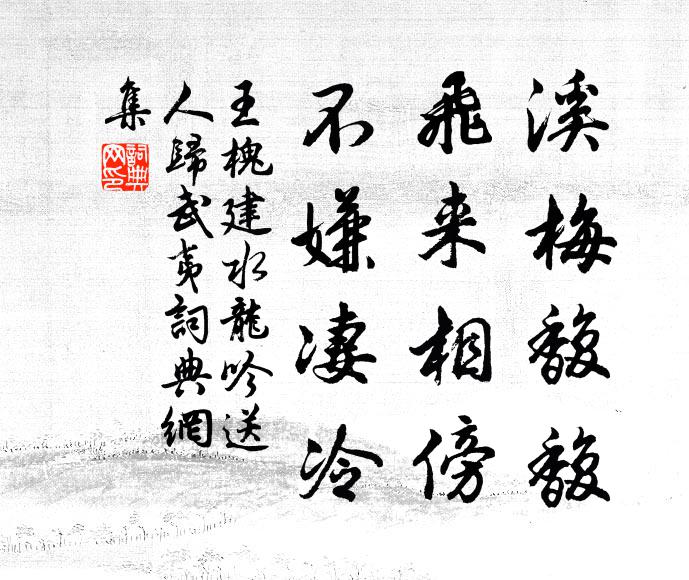 溪梅馥馥
飛来相傍
不嫌淒冷
王槐建水龍吟送
人歸武夷詞典網
集
詞典
网印